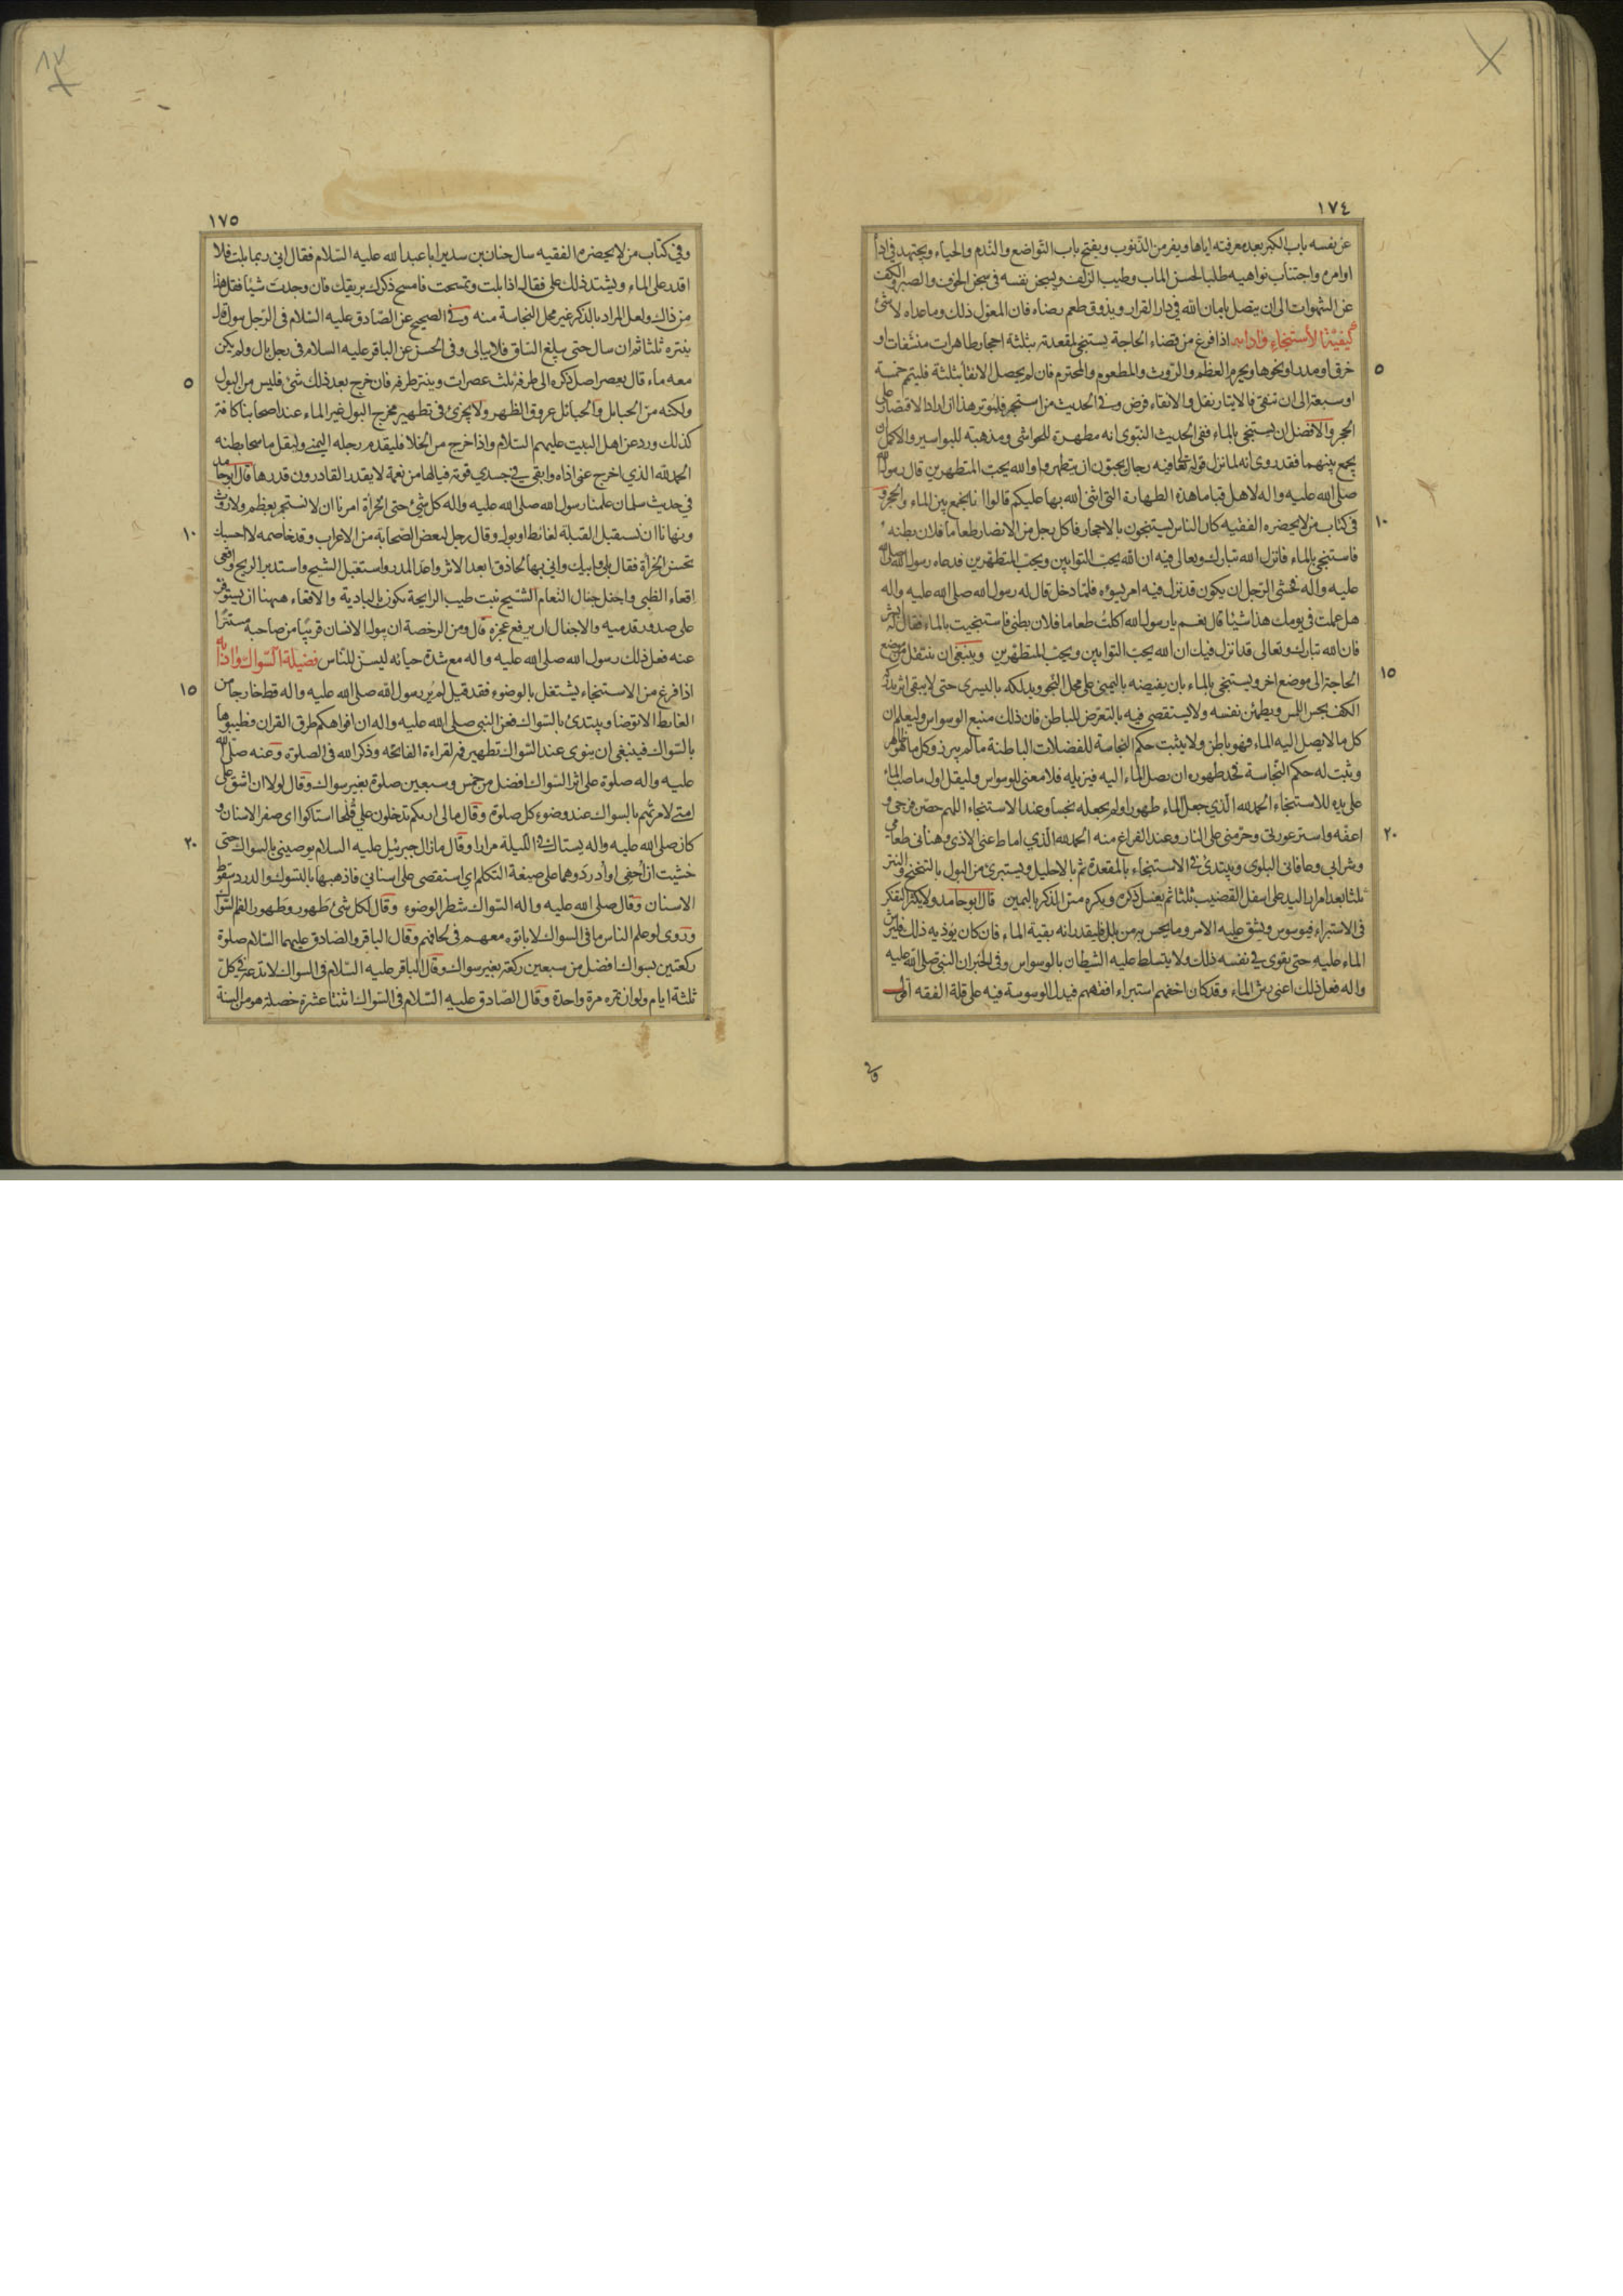 ١٧٤
عن نفسه باب الكبر بعد معرفته اياها ويفر من الذنوب ويفتح باب التواضع والندم والحياء ويجتهد في اداء
اوامره واجتناب نواهيه طلبا لحسن الماب وطيب الزلف ويسجن نفسه في سجن الخوف والصبر والكف
عن الشهوات الى ان يتصل بامان الله في دار القرار ويذوق طعم رضاه فان المعول ذلك وما عداه لا شئ
كيفية الاستنجاء وادابه اذا فرغ من قضاء الحاجة يستنجي لمقعدته بثلثة احجار طاهرات منشفات او
خرق او مدر او نحوها ويحرم العظم والروث والمطعوم والمحترم فان لم يحصل الانقا بثلثة فليتم خمسة
٥
او سبعة الى ان تنقى فالايتار نفل والانقاء فرض وفي الحديث من استجمر فليوتر هذا ان اراد الاقتصار على
الحجر والافضل ان يستنجي بالماء ففي الحديث النبوي انه مطهرة للحواشي ومذهبة للبواسير والاكمل ان
يجمع بينهما فقد روى انه لما نزل قوله تعالى فيه رجال يحبون ان يتطهروا والله يحب المتطهرين قال رسول الله
صلى الله عليه واله لاهل قبا ما هذه الطهارة التي اثنى الله بها عليكم قالوا انا نجمع بين الماء والحجر و
في كتاب من لا يحضره الفقيه كان الناس يستنجون بالاحجار فاكل رجل من الانصار طعاما فلان بطنه
١٠
فاستنجى بالماء فانزل الله تبارك وتعالى فيه ان الله يحب التوابين ويحب المتطهرين فدعاه رسول الله صلى الله
عليه واله فخشى الرجل ان يكون قد نزل فيه امر يسوءه فلما دخل قال له رسول الله صلى الله عليه واله
هل عملت في يومك هذا شيئا قال نعم يا رسول الله اكلت طعاما فلان بطني فاستنجيت بالماء فقال له ابشر
فان الله تبارك وتعالى قد انزل فيك ان الله يحب التوابين ويحب المتطهرين وينبغي ان ينتقل من موضع
الحاجة الى موضع اخر ويستنجي بالماء بان يفيضه باليمنى على محل النجو ويدلكه باليسرى حتى لا يبقى اثر يدركه
١٥
الكف بحس اللمس ويطمئن نفسه ولا يستقصي فيه بالتعرض للباطن فان ذلك منبع الوسواس وليعلم ان
كل ما لا يصل اليه الماء فهو باطن ولا يثبت حكم النجاسة للفضلات الباطنة ما لم يبرز وكل ما هو ظاهر
ويثبت له حكم النجاسة فحد طهوره ان يصل الماء اليه فيزيله فلا معنى للوسواس وليقل اول ما صب الماء
على يده للاستنجاء الحمد لله الذي جعل الماء طهورا ولم يجعله نجسا وعند الاستنجاء اللهم حصن فرجي و
اعفه واستر عورتي وحرمني على النار وعند الفراغ منه الحمد لله الذي اماط عني الاذى وهنأني طعامي
٢٠
وشرابي وعافاني البلوى ويبتدئ في الاستنجاء بالمقعدة ثم بالاحليل ويستبرئ من البول بالتنحنح والنتر
ثلثا بعد امرار اليد على اسفل القضيب ثلثا ثم يغسل ذكره ويكره مس الذكر باليمين قال ابو حامد ولا يكثر التفكر
في الاستبراء فيوسوس ويشق عليه الامر وما يحس به من بلل فليقدر انه بقية الماء فان كان يؤذيه ذلك فليرش
الماء عليه حتى يقوى في نفسه ذلك ولا يتسلط عليه الشيطان بالوسواس وفي الخبر ان النبي صلى الله عليه
واله فعل ذلك اعني رش الماء وقد كان اخفهم استبراء افقههم فيدل الوسوسة فيه على قلة الفقه اقول
١٧٥
وفي كتاب من لا يحضره الفقيه سال حنان بن سدير ابا عبد الله عليه السلام فقال اني ربما بلت فلا
اقدر على الماء ويشتد ذلك على فقال اذا بلت وتمسحت فامسح ذكرك بريقك فان وجدت شيئا فقل هذا
من ذاك ولعل المراد بالذكر غير محل النجاسة منه وفي الصحيح عن الصادق عليه السلام في الرجل يبول قال
ينتره ثلثا ثم ان سال حتى يبلغ الساق فلا يبالى وفي الحسن عن الباقر عليه السلام في رجل بال ولم يكن
معه ماء قال يعصر اصل ذكره الى طرفه ثلث عصرات وينتر طرفه فان خرج بعد ذلك شئ فليس من البول
٥
ولكنه من الحبايل والحبائل عروق الظهر ولا يجزئ في تطهير مخرج البول غير الماء عند اصحابنا كافة
كذلك ورد عن اهل البيت عليهم السلام واذا خرج من الخلا فليقدم رجله اليمنى وليقل ماسحا بطنه
الحمد لله الذي اخرج عني اذاه وابقى في جسدي قوته فيالها من نعمة لا يقدر القادرون قدرها قال ابو حامد
في حديث سلمان علمنا رسول الله صلى الله عليه واله كل شئ حتى الخرأة امرنا ان لا نستجمر بعظم ولا روث
ونهانا ان نستقبل القبلة لغائط او بول وقال رجل لبعض الصحابة من الاعراب وقد خاصمه لا احسبك
١٠
تحسن الخرأة فقال بلى وابيك واني بها لحاذق ابعد الاثر واعد المدر واستقبل الشيح واستدبر الريح واقعى
اقعاء الظبي واجفل اجفال النعام الشيح نبت طيب الرايحة يكون بالبادية والاقعاء ههنا ان يستوفز
على صدور قدميه والاجفال ان يرفع عجزه قال ومن الرخصة ان يبول الانسان قريبا من صاحبه مستترا
عنه فعل ذلك رسول الله صلى الله عليه واله مع شدة حيائه ليسن للناس فضيلة السواك وادابه
اذا فرغ من الاستنجاء يشتغل بالوضوء فقد قيل لم ير رسول الله صلى الله عليه واله قط خارجا من
١٥
الغايط الا توضا ويبتدئ بالسواك فعن النبي صلى الله عليه واله ان افواهكم طرق القران فطيبوها
بالسواك فينبغي ان ينوى عند السواك تطهير فمه لقراءة الفاتحة وذكر الله في الصلوة وعنه صلى الله
عليه واله صلوة على اثر السواك افضل من خمس وسبعين صلوة بغير سواك وقال لولا ان اشق على
امتي لامرتهم بالسواك عند وضوء كل صلوة وقال مالي اراكم تدخلون علي قلحا استاكوا اى صفر الاسنان و
كان صلى الله عليه واله يستاك في الليلة مرارا وقال ما زال جبرئيل عليه السلام يوصيني بالسواك حتى
٢٠
خشيت ان احفى او ادرد وهما على صيغة التكلم اي استقصى على اسناني فاذهبها بالتسوك والدرد سقوط
الاسنان وقال صلى الله عليه واله السواك شطر الوضوء وقال لكل شئ طهور وطهور الفم السواك
وروى لو علم الناس ما في السواك لاباتوه معهم في لحافهم وقال الباقر والصادق عليهما السلام صلوة
ركعتين بسواك افضل من سبعين ركعة بغير سواك وقال الباقر عليه السلام في السواك لا تدعه في كل
ثلثة ايام ولو ان تمره مرة واحدة وقال الصادق عليه السلام في السواك اثنتا عشرة خصلة هو من السنة